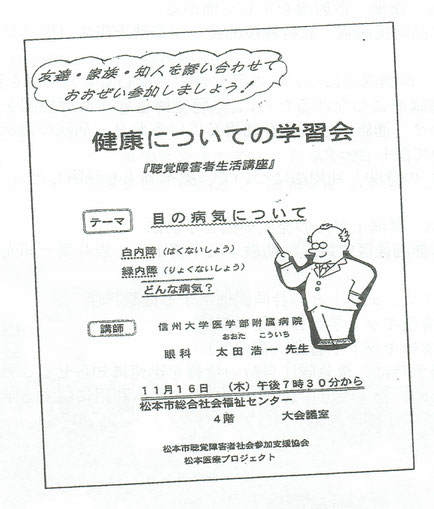 友達・家族・知人を誘い合わせて
おおぜい参加しましょう！
健康についての学習会
『聴覚障害者生活講座』
テーマ 目の病気について
白内障（はくないしょう）
緑内障（りょくないしょう）
どんな病気？
講師 信州大学医学部附属病院
おおた こういち
眼科 太田 浩一 先生
11月16日 （木）午後7時30分から
松本市総合社会福祉センター
4階 大会議室
松本市聴覚障害者社会参加支援協会
松本医療プロジェクト